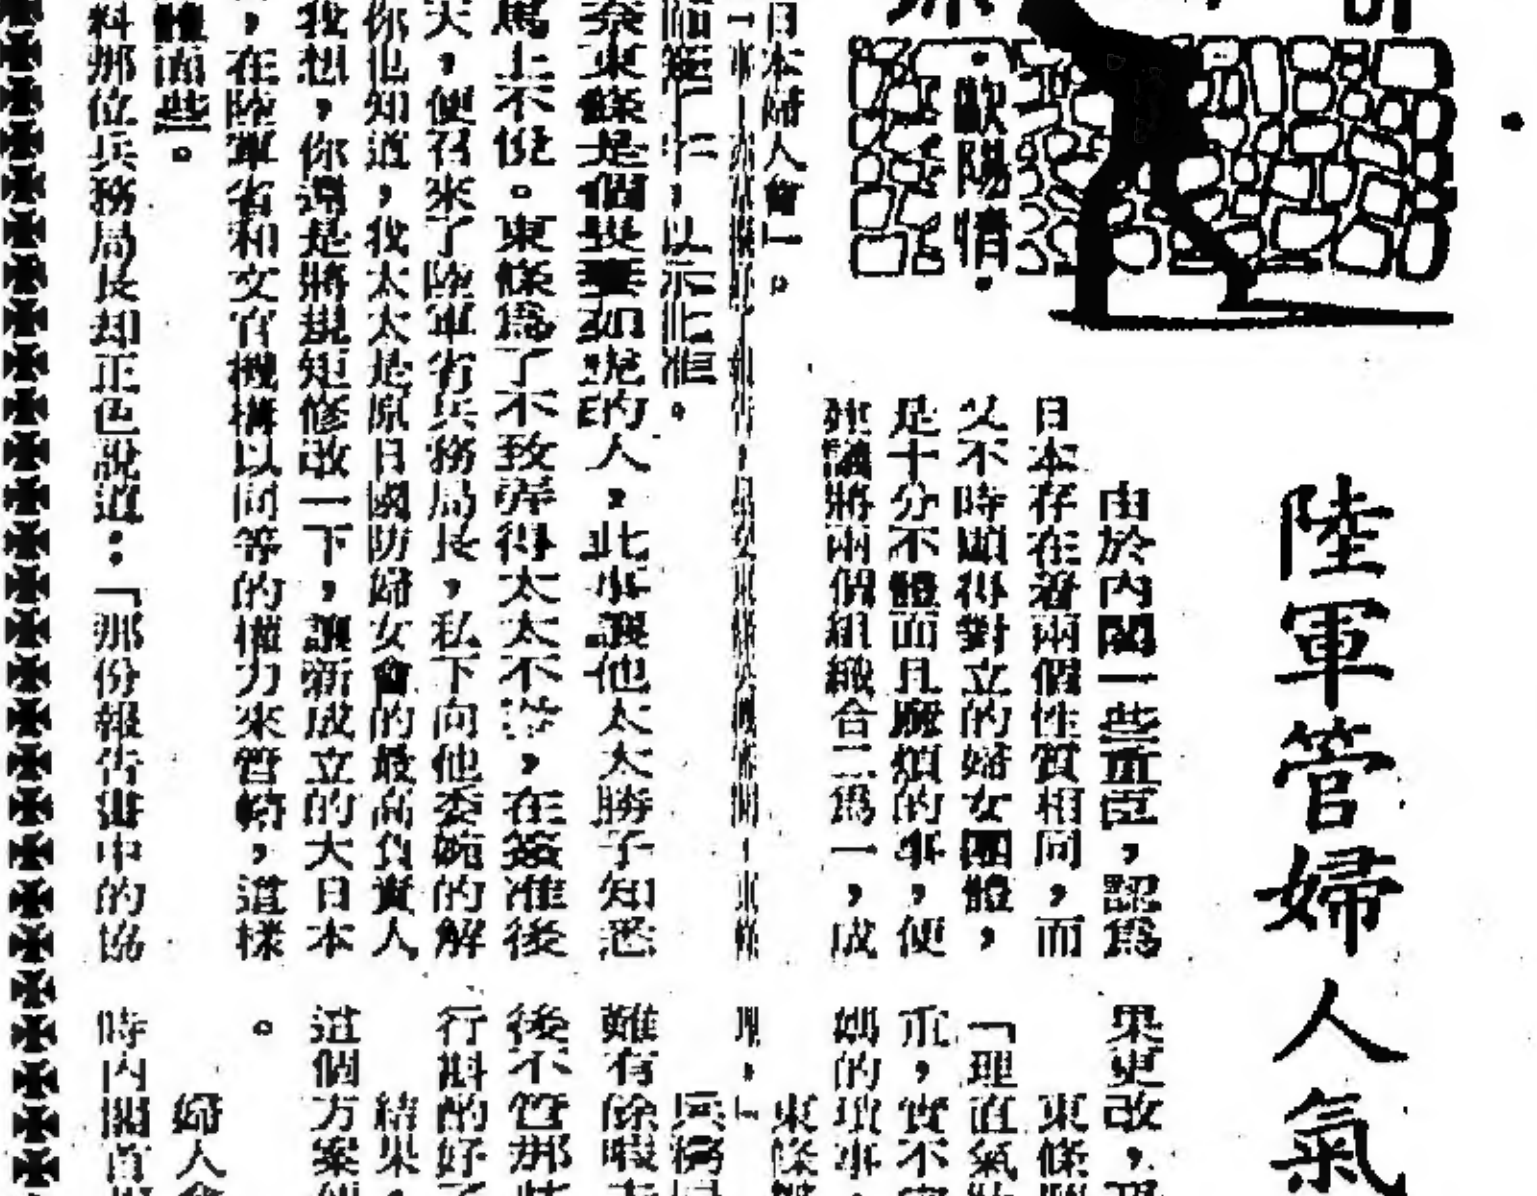 陸軍管婦人氣
歐陽情
由於內閣一些重臣，認爲
日本存在着兩個性質相同，而
又不時顯得對立的婦女團體，
是十分不體面且麻煩的事，便
建議將兩個組織合二爲一，成
日本婦人會」。
，以示批准。
奈東條是個畏妻如虎的人，此事讓他太太勝子知悉
馬上不悅。東條爲了不致弄得太太不，在簽准後
天，便召來了陸軍省兵務局長，私下向他委婉的解
你也知道，我太太是原日國防婦女會的最高負責人
我想，你還是將規矩修改一下，讓新成立的大日本
，在陸軍省和文官機構以同等的權力來管轄，這樣
體面些。
料那位兵務局長却正色說道：「那份報告書中的協
果更改，
東條
「理直氣
重，實不
媽的瑣事，
東條
理，」
兵務局
難有餘暇
後不管那
行斟酌好
結果，
這個方案
。
婦人會
時內閣首